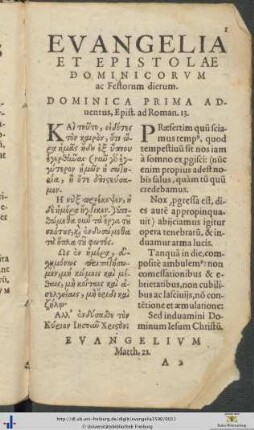 1
EVANGELIA
ET EPISTOLAE
DOMINICORVM
ac Festorum dierum.
DOMINICA PRIMA AD-
uentus, Epist. ad Roman. 13.
Καὶ τοῦτο, εἰδότες
τὸν καιρὸν, ὅτι ὥρα
ἡμᾶς ἤδη ἐξ ὕπνου
ἐγερθῆναι (νῦν γὰρ ἐγ-
γύτερον ἡμῶν ἡ σωτη-
ρία, ἢ ὅτε ἐπιστεύσα-
μεν.
Ἡ νὺξ προέκοψεν, ἡ
δὲ ἡμέρα ἤγγικεν.
τὰ ἔργα τοῦ
σκότους, καὶ ἐνδυσώμεθα
τὰ ὅπλα τοῦ φωτός.
Ὡς ἐν ἡμέρα, εὐσ-
χημόνως περιπατήσω-
μεν, μὴ κώμοις καὶ μέ-
θαις, μὴ κοίταις καὶ ἀ-
σελγείαις, μὴ ἔριδι καὶ
ζήλῳ.
Ἀλλ' ἐνδύσασθε τὸν
Κύριον Ἰησοῦν Χριστόν
Præsertim quũ scia-
mus tempꝰ, quod
tempestiuũ sit nos iam
à somno expgisci: (nũc
enim propius adest no-
bis salus, quàm tũ quũ
credebamus.
Nox pgressa est, di-
es autē appropinqua-
uit) abijciamus igitur
opera tenebrarũ, & in-
duamur arma lucis.
Tanquã in die, com-
positè ambulemꝰ: non
comessationibus & e-
brietatibus, non cubili-
bus ac lasciuijs, nō con-
tētione et æmulatione:
Sed induamini Do-
minum Iesum Christũ.
EVANGELIVM
Matth. 21.
A 2
© Universitätsbibliothek Freiburg